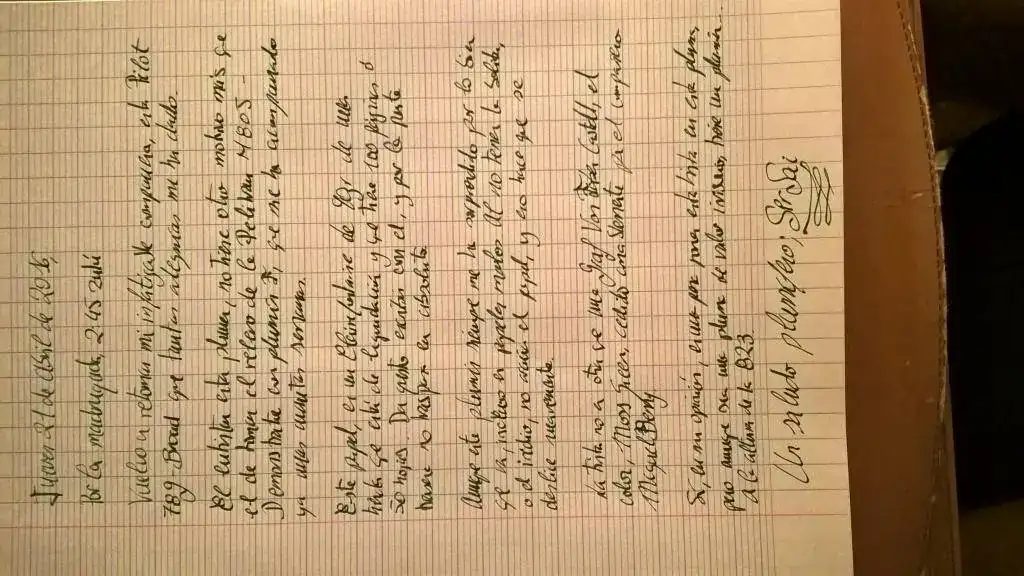 Jueves 21 de abril de 2016,
Por la madrugada, 2:45
Vuelvo a retomar mi infatigable compañera, esta Pilot
78G. Broad que tantas alegrías me ha dado.
El entintar esta pluma, no tiene otro motivo más que
el de tomar el relevo de la Pelikan M805
Demonstrator con plumín F, que me ha acompañado
ya unas cuantas semanas.
Este papel, es un Clairefontaine de 90gr de una
libreta que está de liquidación y que tiene 100 páginas ó
50 hojas. Da gusto escribir con él, y por la parte
trasera no traspasa en absoluto.
Aunque este plumín siempre me ha sorprendido por lo bien
que va, incluso en papeles malos. Al no tener la salida,
o el iridio, no araña el papel, y eso hace que se
deslice suavemente.
La tinta no es otra que una Graf Von Faber Castell, el
color, Moss Green, cedido amablemente por el compañero
Miquel Beny
Sí, en mi opinión, es una gran pluma esta tinta en esta pluma,
pero aunque sea una pluma de valor ínfimo, tiene un plumín...
A la altura de la 823.
Un saludo plumífero, Sr Sai